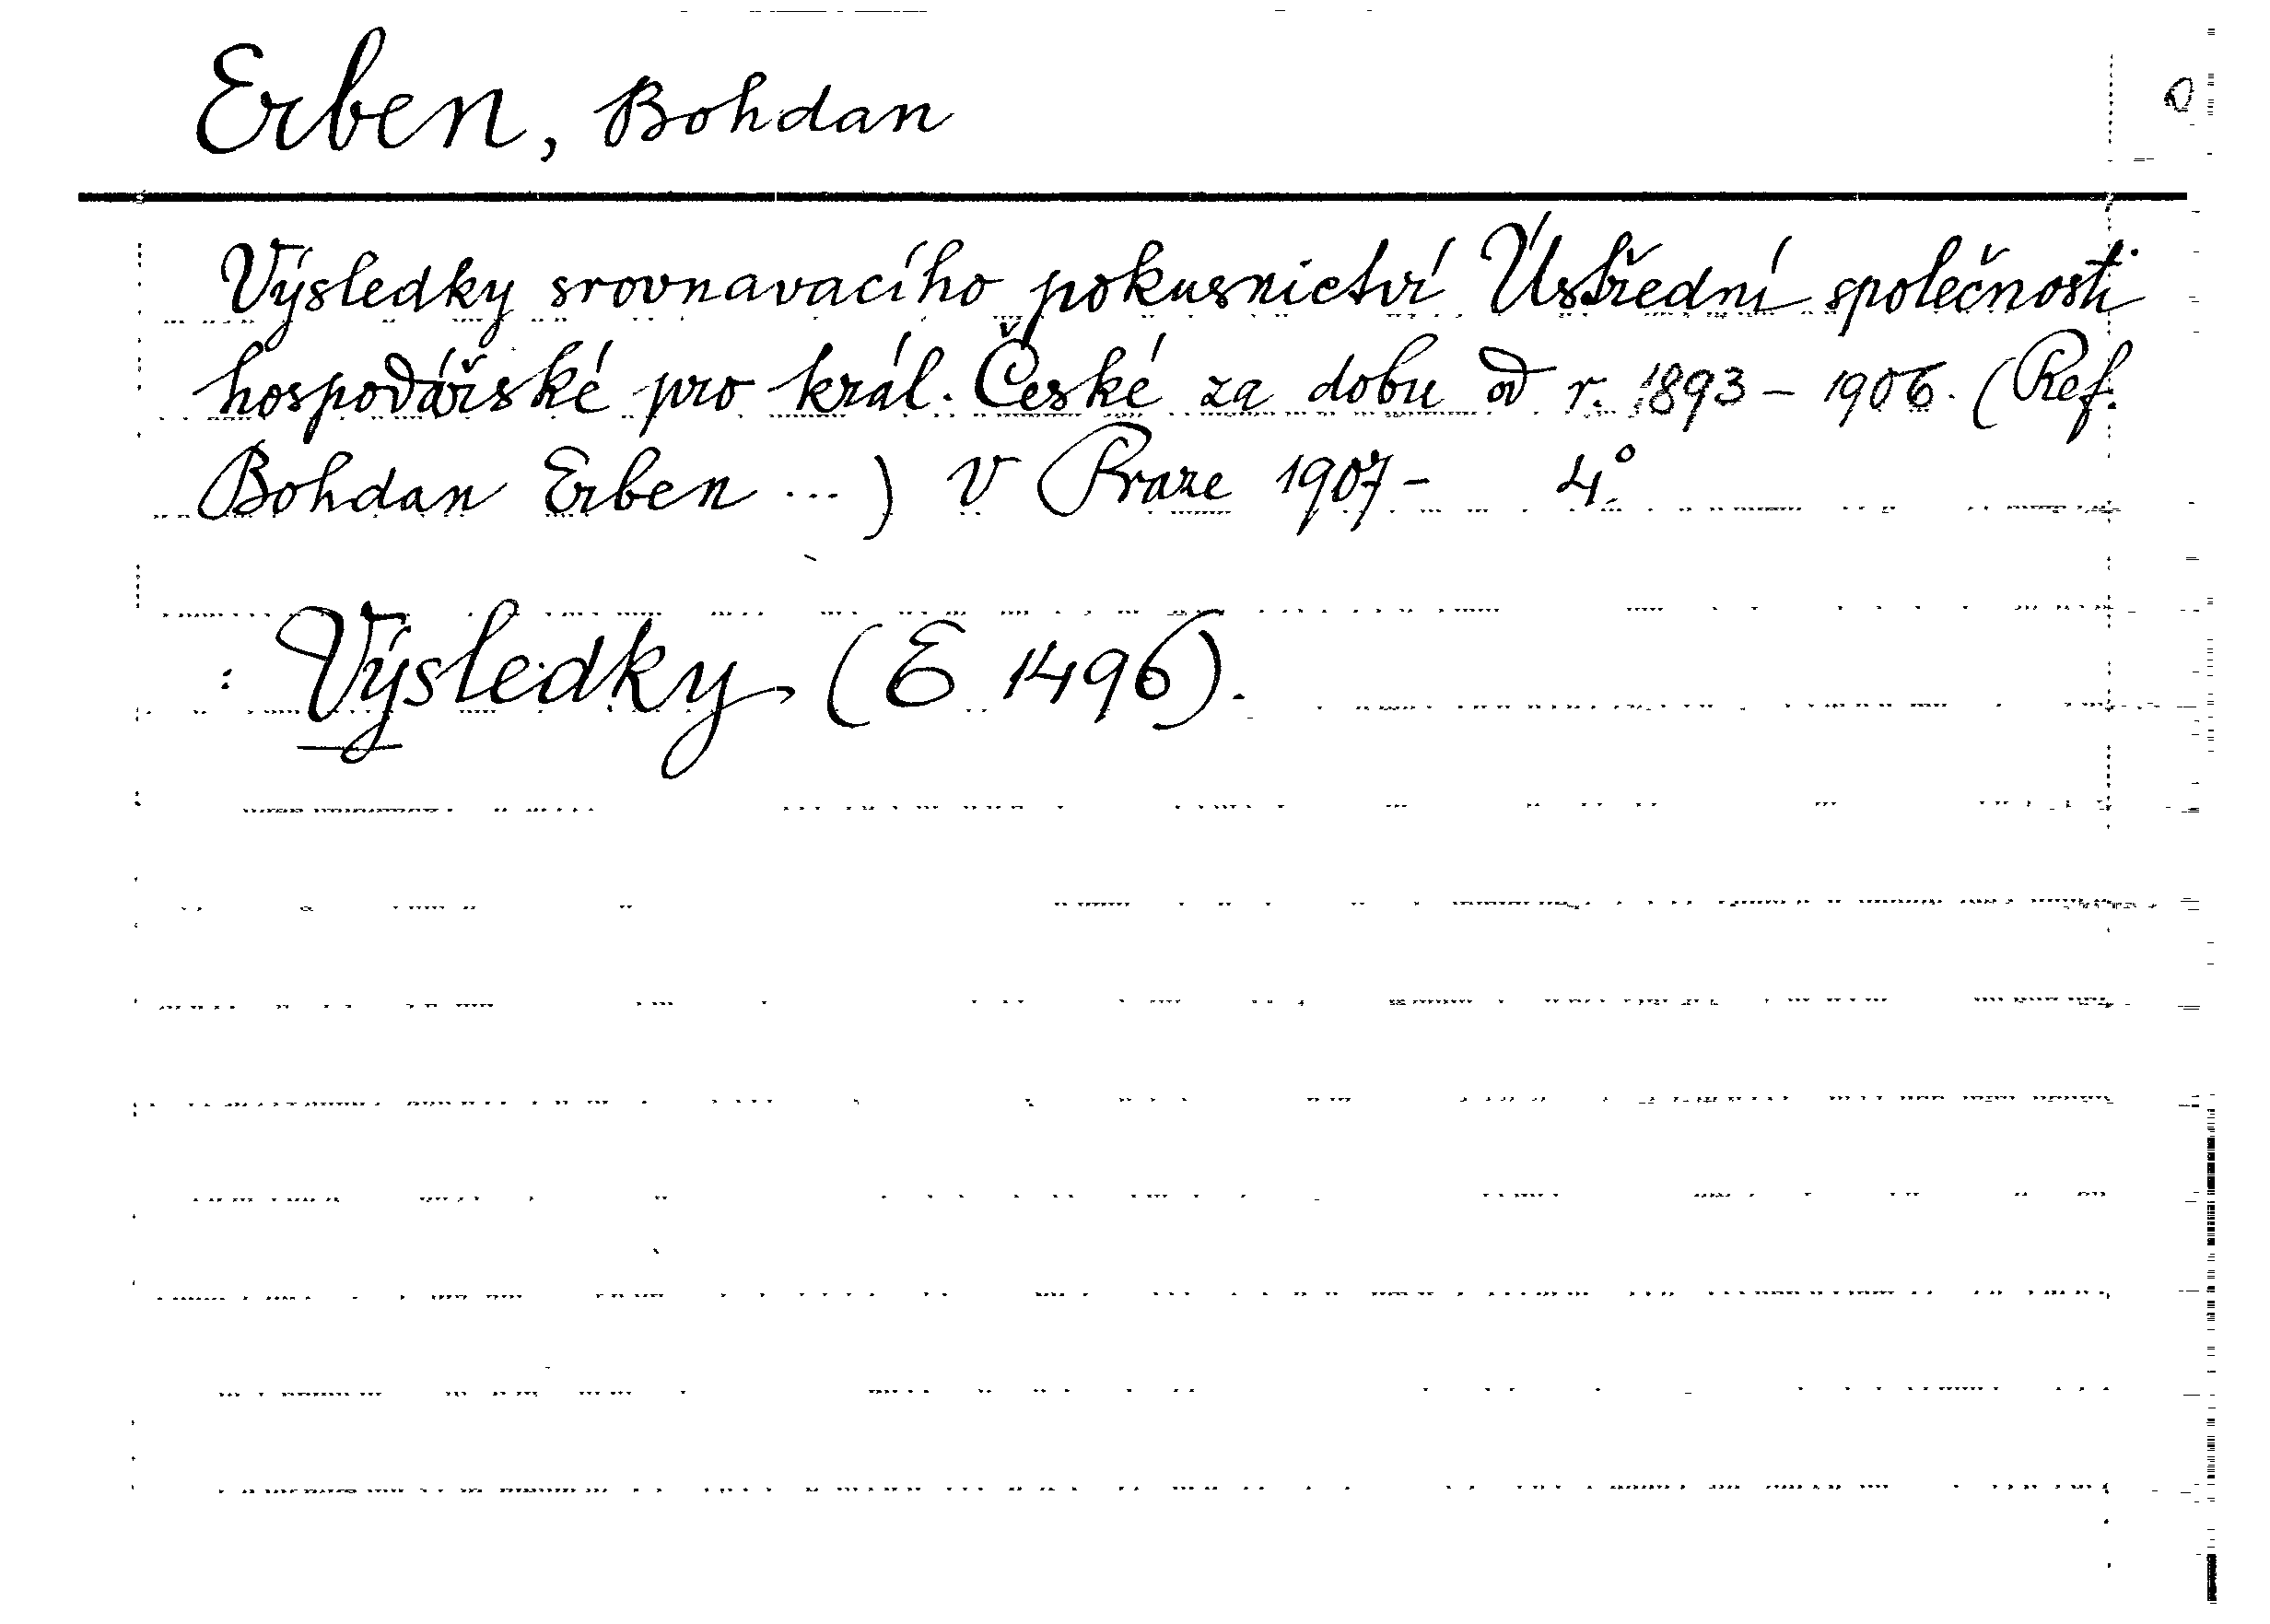 Erben, Bohdan
Výsledky srovnavacího pokusnictví Ústřední společnosti
hospodářské pro král. České za dobu od r. 1893 - 1906. (Ref.
Bohdan Erben ...) V Praze 1907- 4°.
: Výsledky. (E 1496).